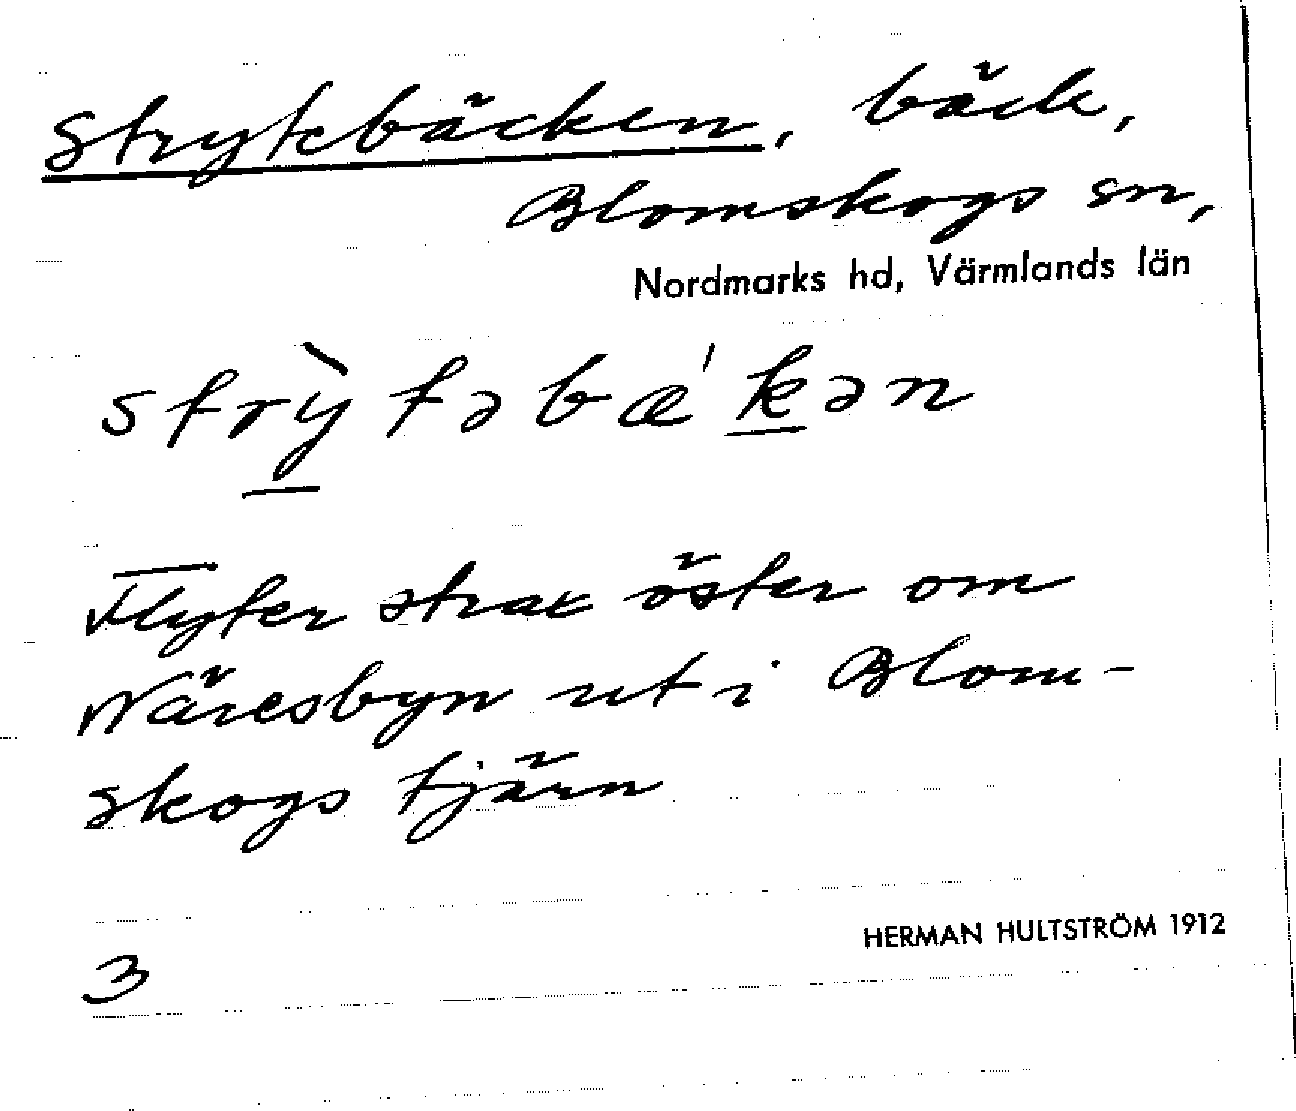 Strytebäcken, bäck,
Blomskogs sn,
Nordmarks hd, Värmlands län
strỳtəbæ'kən
Flyter strax öster om
Näresbyn ut i Blom-
skogs tjärn
HERMAN HULTSTRÖM 1912
3